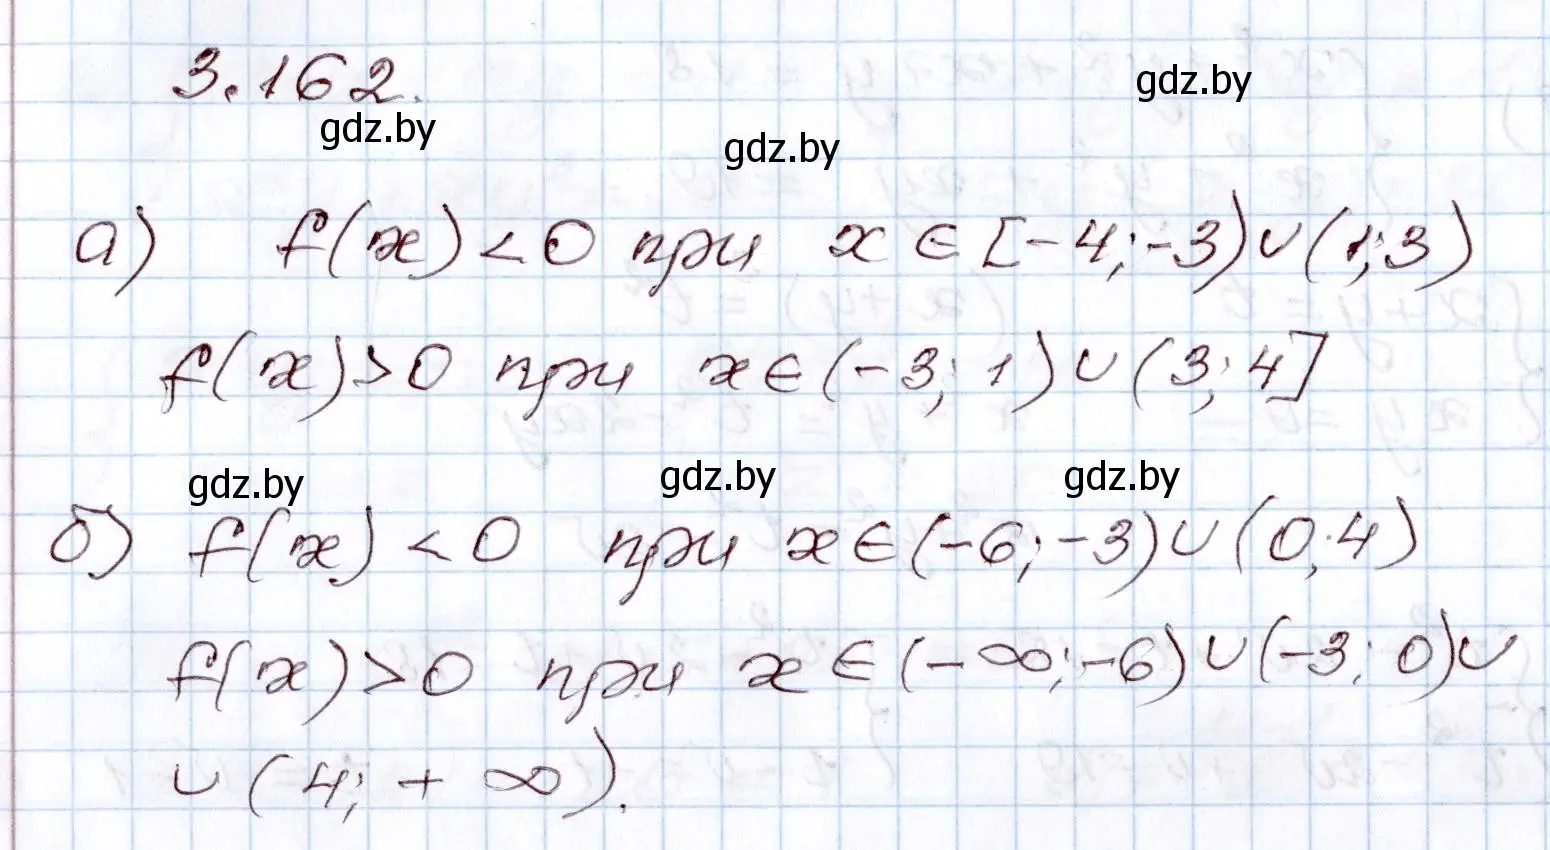 3.162.
gdz.by
gdz.by
gdz.by
а) f(x) < 0 при x ∈ [-4; -3) ∪ (1; 3)
f(x) > 0 при x ∈ (-3; 1) ∪ (3; 4]
gdz.by
gdz.by
gdz.by
б) f(x) < 0 при x ∈ (-6; -3) ∪ (0; 4)
f(x) > 0 при x ∈ (-∞; -6) ∪ (-3; 0) ∪
∪ (4; +∞).